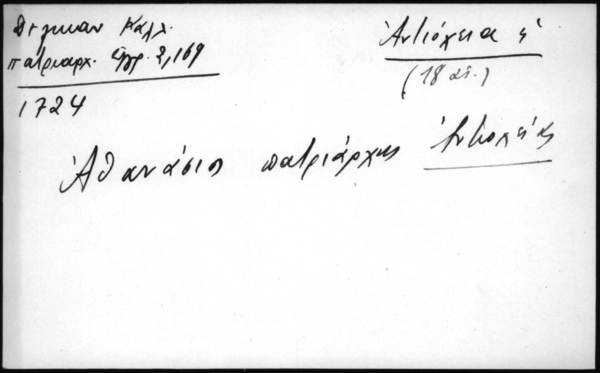 Δελικαν Καλλ.
πατριαρχ. έγγρ. 2, 169
1724
Ἀντιόχεια ἡ
(18 αἰ.)
Ἀθανάσιος πατριάρχης Ἀντιοχείας